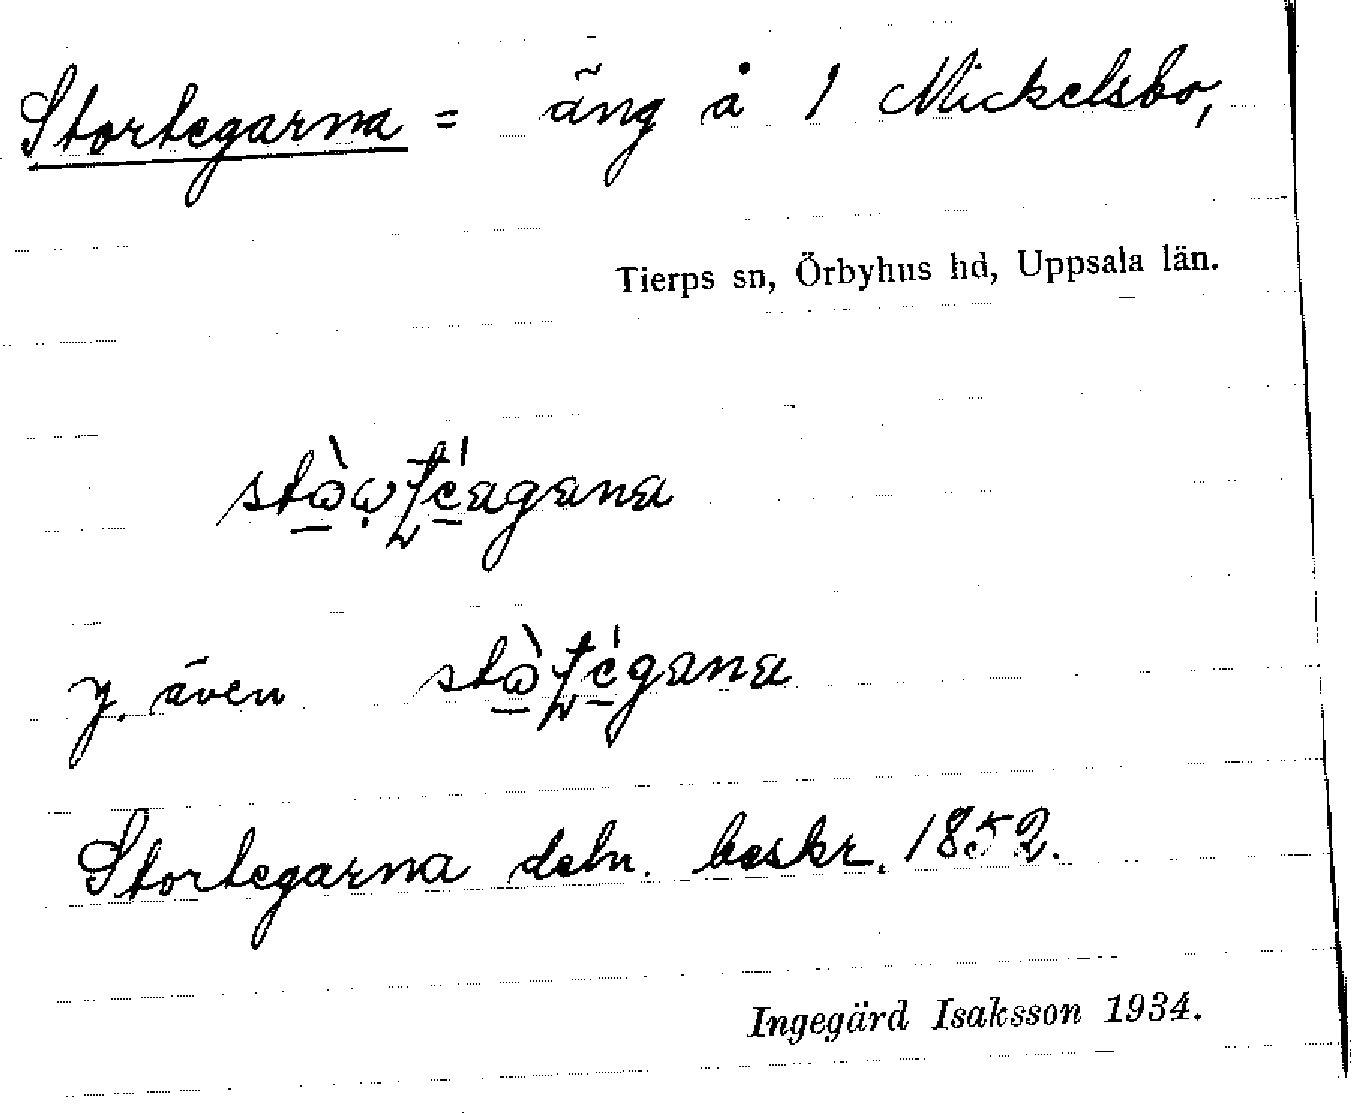 Stortegarna = äng å 1 Mickelsbo,
Tierps sn, Örbyhus hd, Uppsala län.
y. även
Stortegarna deln. beskr. 1852.
Ingegärd Isaksson 1934.